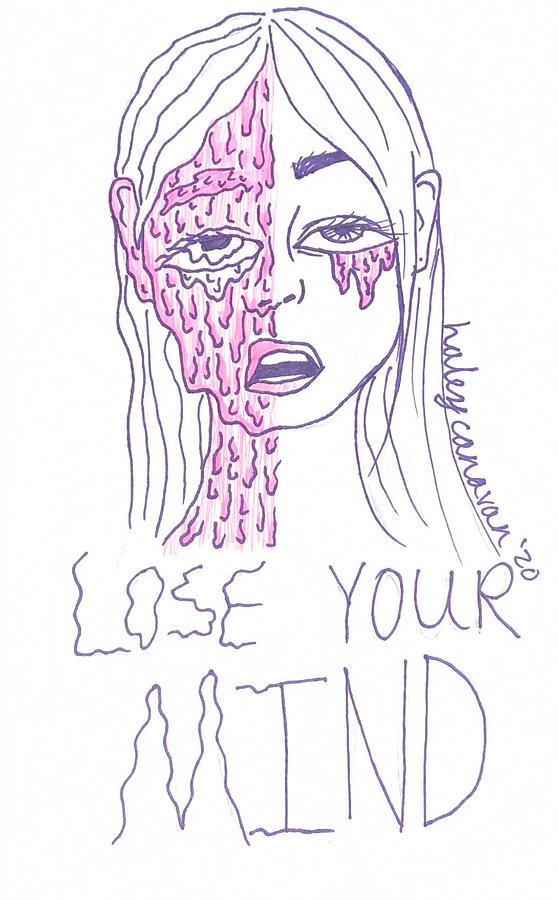 haleycanavan '20
LOSE YOUR
MIND